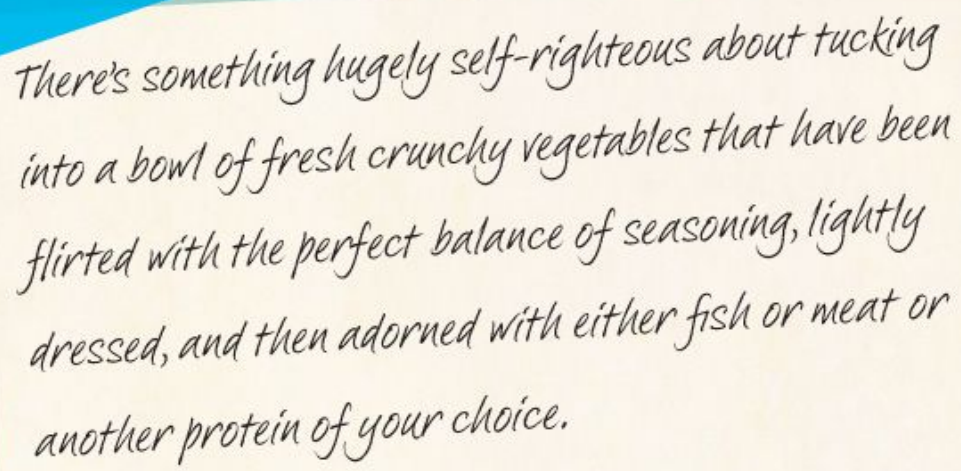 There's something hugely self-righteous about tucking
into a bowl of fresh crunchy vegetables that have been
flirted with the perfect balance of seasoning, lightly
dressed, and then adorned with either fish or meat or
another protein of your choice.